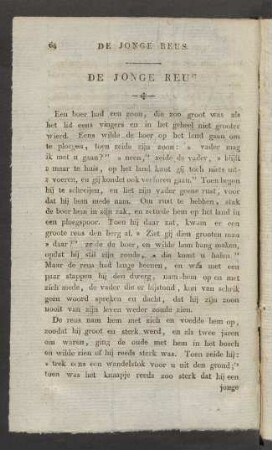 64 DE JONGE REUS.
DE JONGE REUS
Een boer had een zoon, die zoo groot was als
het lid eens vingers en in het geheel niet grooter
wierd. Eens wilde de boer op het land gaan om
te ploegen, toen zeide zijn zoon: » vader mag
ik met u gaan?" » neen," zeide de vader, » blijf
» maar te huis, op het land kunt gij toch niets uit-
» voeren, en gij kondet ook verloren gaan." Toen begon
hij te schreijen, en liet zijn vader geene rust, voor
dat hij hem mede nam. Om rust te hebben, stak
de boer hem in zijn zak, en zettede hem op het land in
een ploegspoor. Toen hij daar zat, kwam er een
groote reus den berg af. » Ziet gij dien grooten man
» daar?" zeide de boer, en wilde hem bang maken,
opdat hij stil zijn zoude, » die komt u halen."
Maar de reus had lange beenen, en was met een
paar stappen bij den dwerg, nam hem op en met
zich mede, de vader die er bijstond, kon van schrik
geen woord spreken en dacht, dat hij zijn zoon
nooit van zijn leven weder zoude zien.
De reus nam hem met zich en voedde hem op,
zoodat hij groot en sterk werd, en als twee jaren
om waren, ging de oude met hem in het bosch
en wilde zien of hij reeds sterk was. Toen zeide hij:
» trek eens een wandelstok voor u uit den grond;"
toen was het knaapje reeds zoo sterk dat hij een
jonge